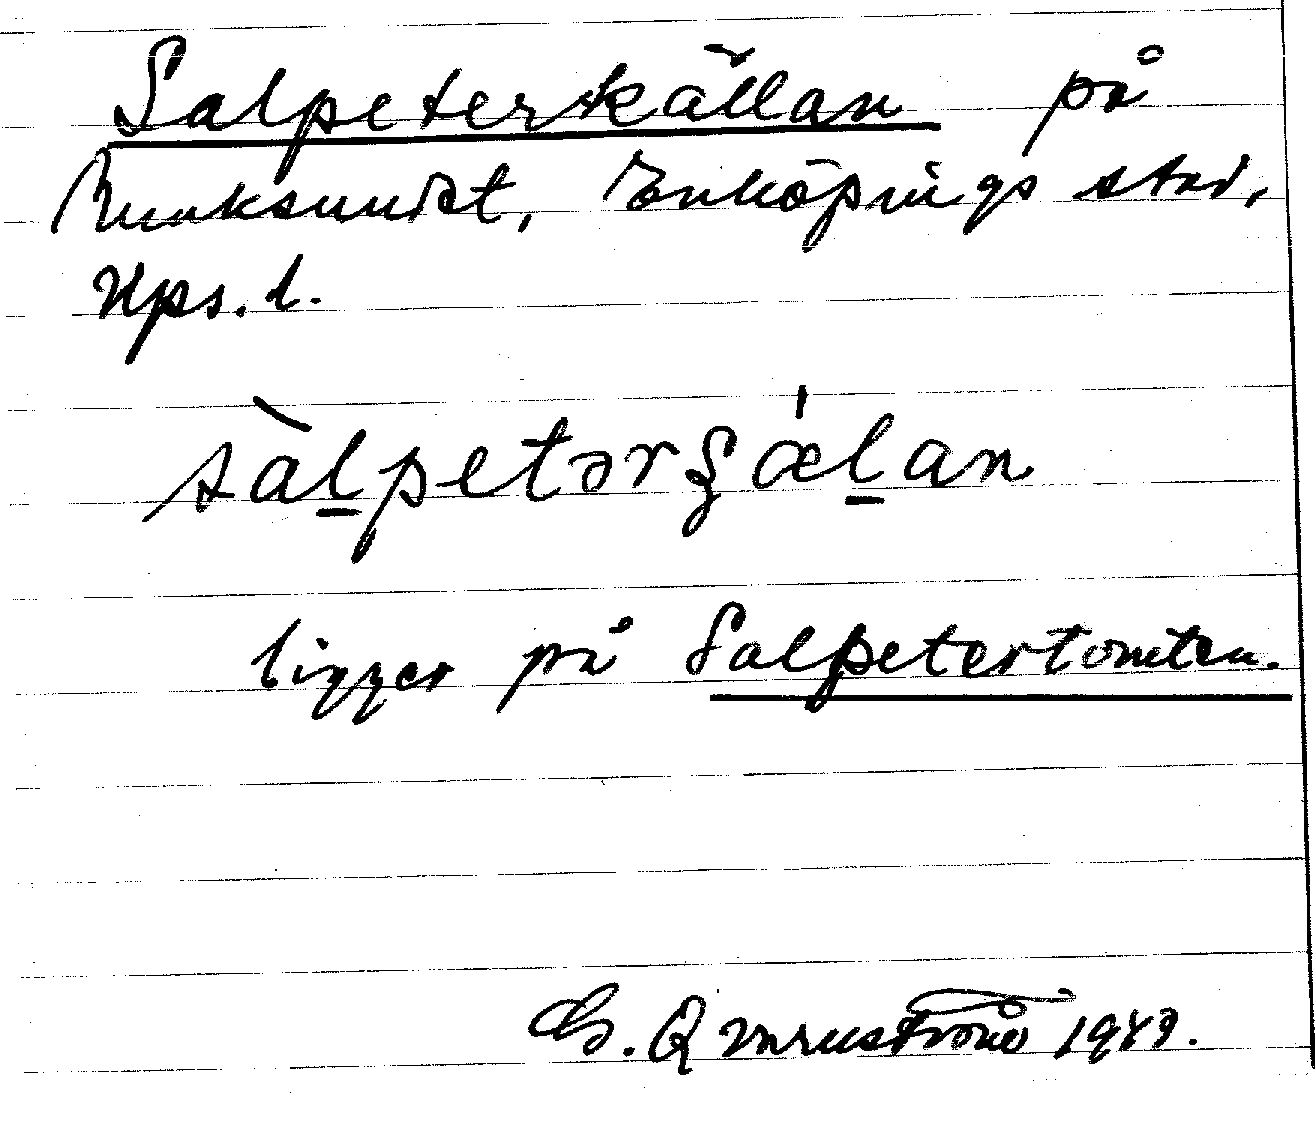 Salpeterkällan på
Munksundet, Enköpings stad,
Upps. l.
sàl̲petərʂǽl̲an
ligger på Salpetertomten.
1949.